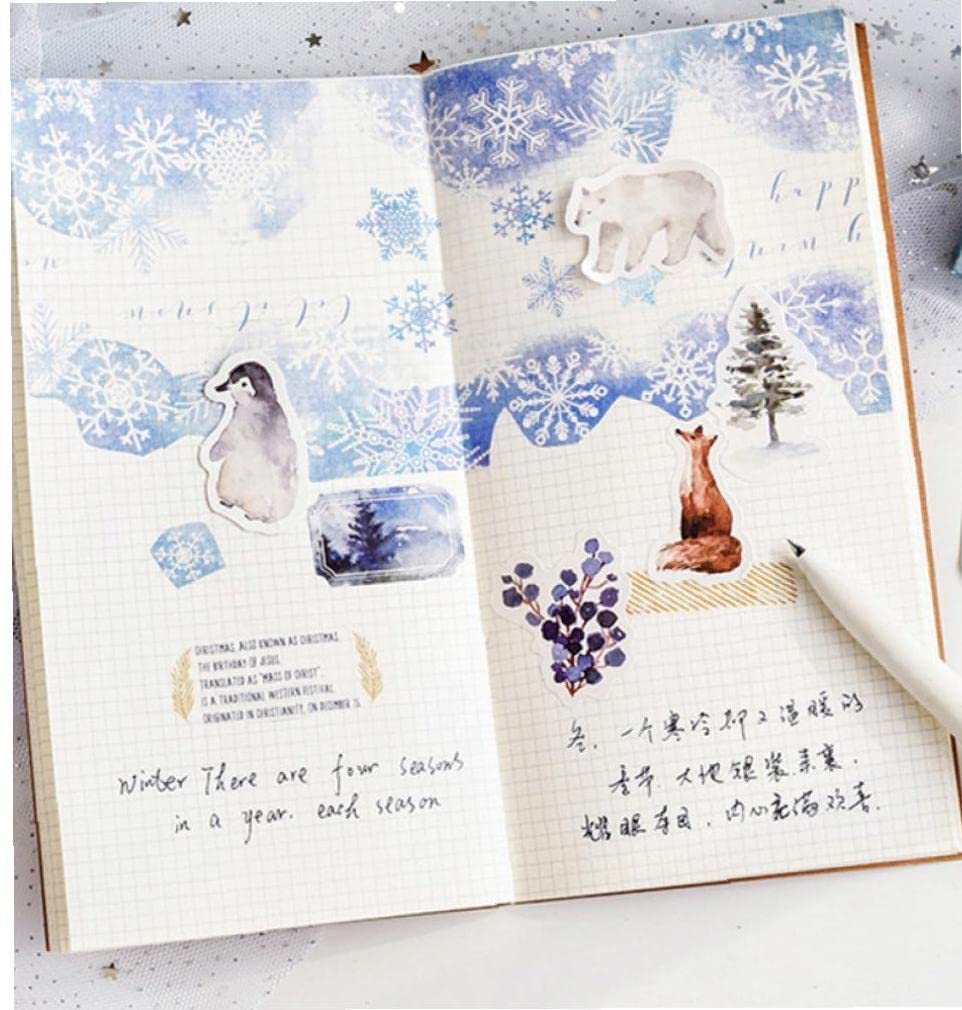 let it snow
CHRISTMAS, ALSO KNOWN AS CHRISTMAS,
THE BIRTHDAY OF JESUS,
TRANSLATED AS "MASS OF CHRIST",
IS A TRADITIONAL WESTERN FESTIVAL,
ORIGINATED IN CHRISTIANITY, ON DECEMBER 25.
Winter There are four seasons
in a year. each season
happ
冬，一个寒冷却又温暖的
季节，大地银装素裹，
耀眼夺目，内心充满欢喜。